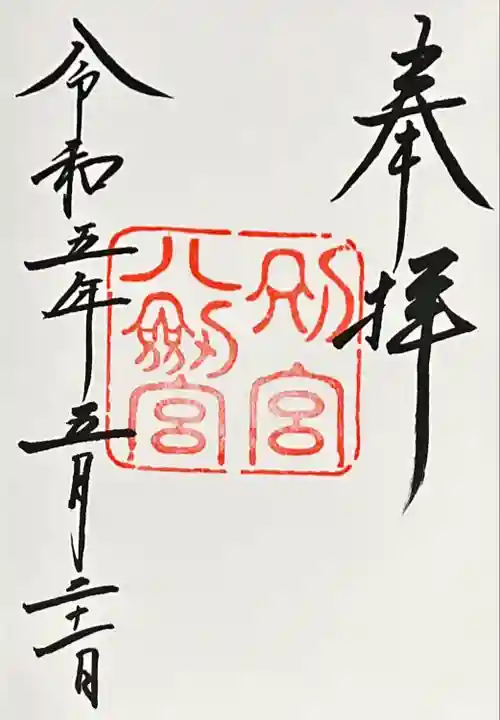 奉拝
別宮
八劍宮
令和五年五月二十一日